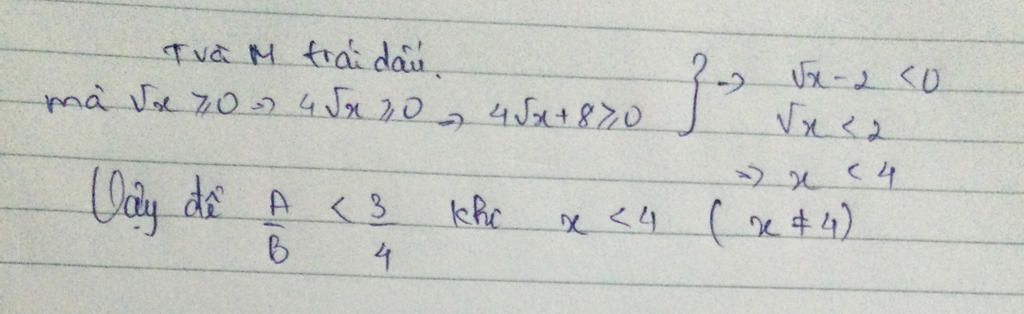 T và M trái dấu.
mà √x ≥ 0 => 4√x ≥ 0 => 4√x + 8 ≥ 0 } => √x - 2 < 0
√x < 2
=> x < 4
Vậy để A/B < 3/4 khi x < 4 (x ≠ 4)